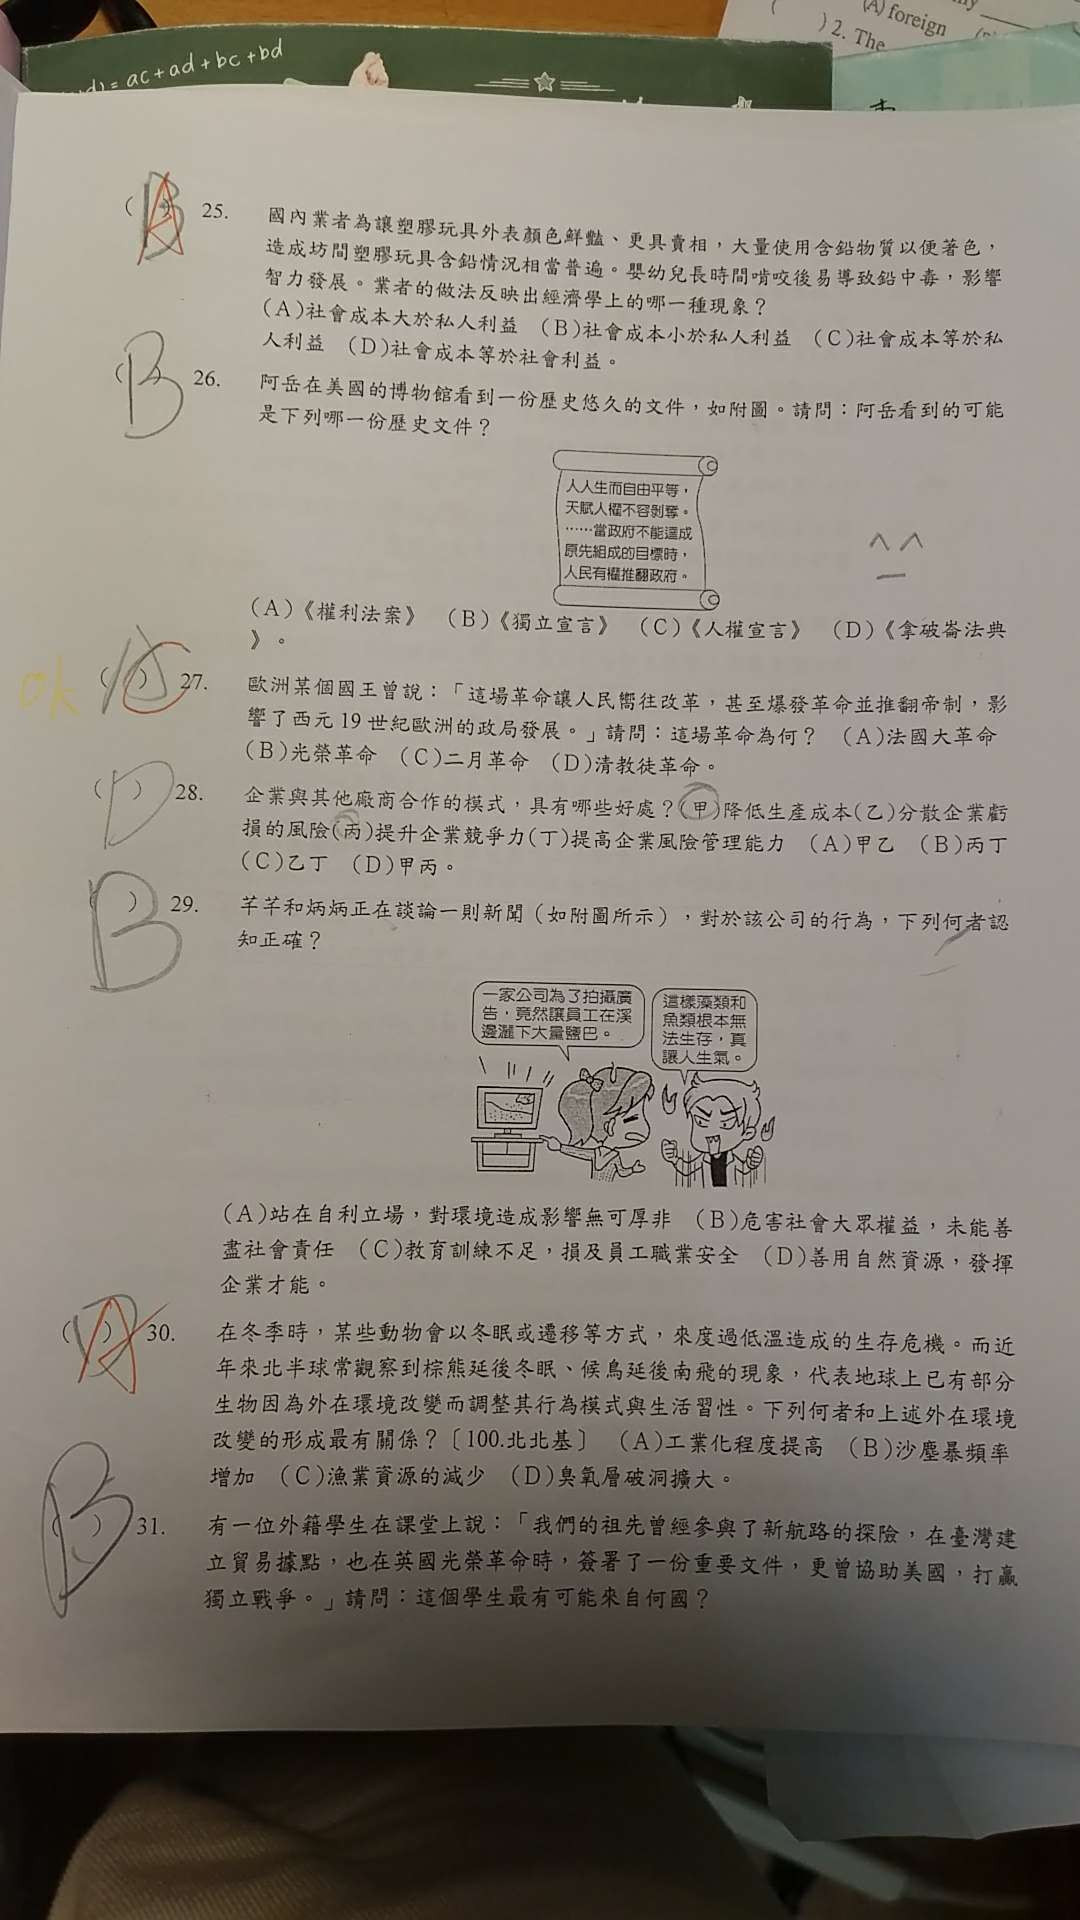 = ac+ad+bc+bd
(A) foreign
) 2. The
( ) 25. 國內業者為讓塑膠玩具外表顏色鮮豔、更具賣相，大量使用含鉛物質以便著色，
造成坊間塑膠玩具含鉛情況相當普遍。嬰幼兒長時間啃咬後易導致鉛中毒，影響
智力發展。業者的做法反映出經濟學上的哪一種現象？
(A)社會成本大於私人利益 (B)社會成本小於私人利益 (C)社會成本等於私
人利益 (D)社會成本等於社會利益。
B
A
( ) 26. 阿岳在美國的博物館看到一份歷史悠久的文件，如附圖。請問：阿岳看到的可能
是下列哪一份歷史文件？
B
人人生而自由平等，
天賦人權不容剝奪。
……當政府不能達成
原先組成的目標時，
人民有權推翻政府。
(A)《權利法案》 (B)《獨立宣言》 (C)《人權宣言》 (D)《拿破崙法典
》。
ok
( ) 27. 歐洲某個國王曾說：「這場革命讓人民嚮往改革，甚至爆發革命並推翻帝制，影
響了西元 19 世紀歐洲的政局發展。」請問：這場革命為何？ (A)法國大革命
(B)光榮革命 (C)二月革命 (D)清教徒革命。
C
( ) 28. 企業與其他廠商合作的模式，具有哪些好處？(甲)降低生產成本(乙)分散企業虧
損的風險(丙)提升企業競爭力(丁)提高企業風險管理能力 (A)甲乙 (B)丙丁
(C)乙丁 (D)甲丙。
D
( ) 29. 芊芊和炳炳正在談論一則新聞（如附圖所示），對於該公司的行為，下列何者認
知正確？
B
一家公司為了拍攝廣
告，竟然讓員工在溪
邊灑下大量鹽巴。
這樣藻類和
魚類根本無
法生存，真
讓人生氣。
(A)站在自利立場，對環境造成影響無可厚非 (B)危害社會大眾權益，未能善
盡社會責任 (C)教育訓練不足，損及員工職業安全 (D)善用自然資源，發揮
企業才能。
( ) 30. 在冬季時，某些動物會以冬眠或遷移等方式，來度過低溫造成的生存危機。而近
年來北半球常觀察到棕熊延後冬眠、候鳥延後南飛的現象，代表地球上已有部分
生物因為外在環境改變而調整其行為模式與生活習性。下列何者和上述外在環境
改變的形成最有關係？〔100.北北基〕 (A)工業化程度提高 (B)沙塵暴頻率
增加 (C)漁業資源的減少 (D)臭氧層破洞擴大。
A
( ) 31. 有一位外籍學生在課堂上說：「我們的祖先曾經參與了新航路的探險，在臺灣建
立貿易據點，也在英國光榮革命時，簽署了一份重要文件，更曾協助美國，打贏
獨立戰爭。」請問：這個學生最有可能來自何國？
B